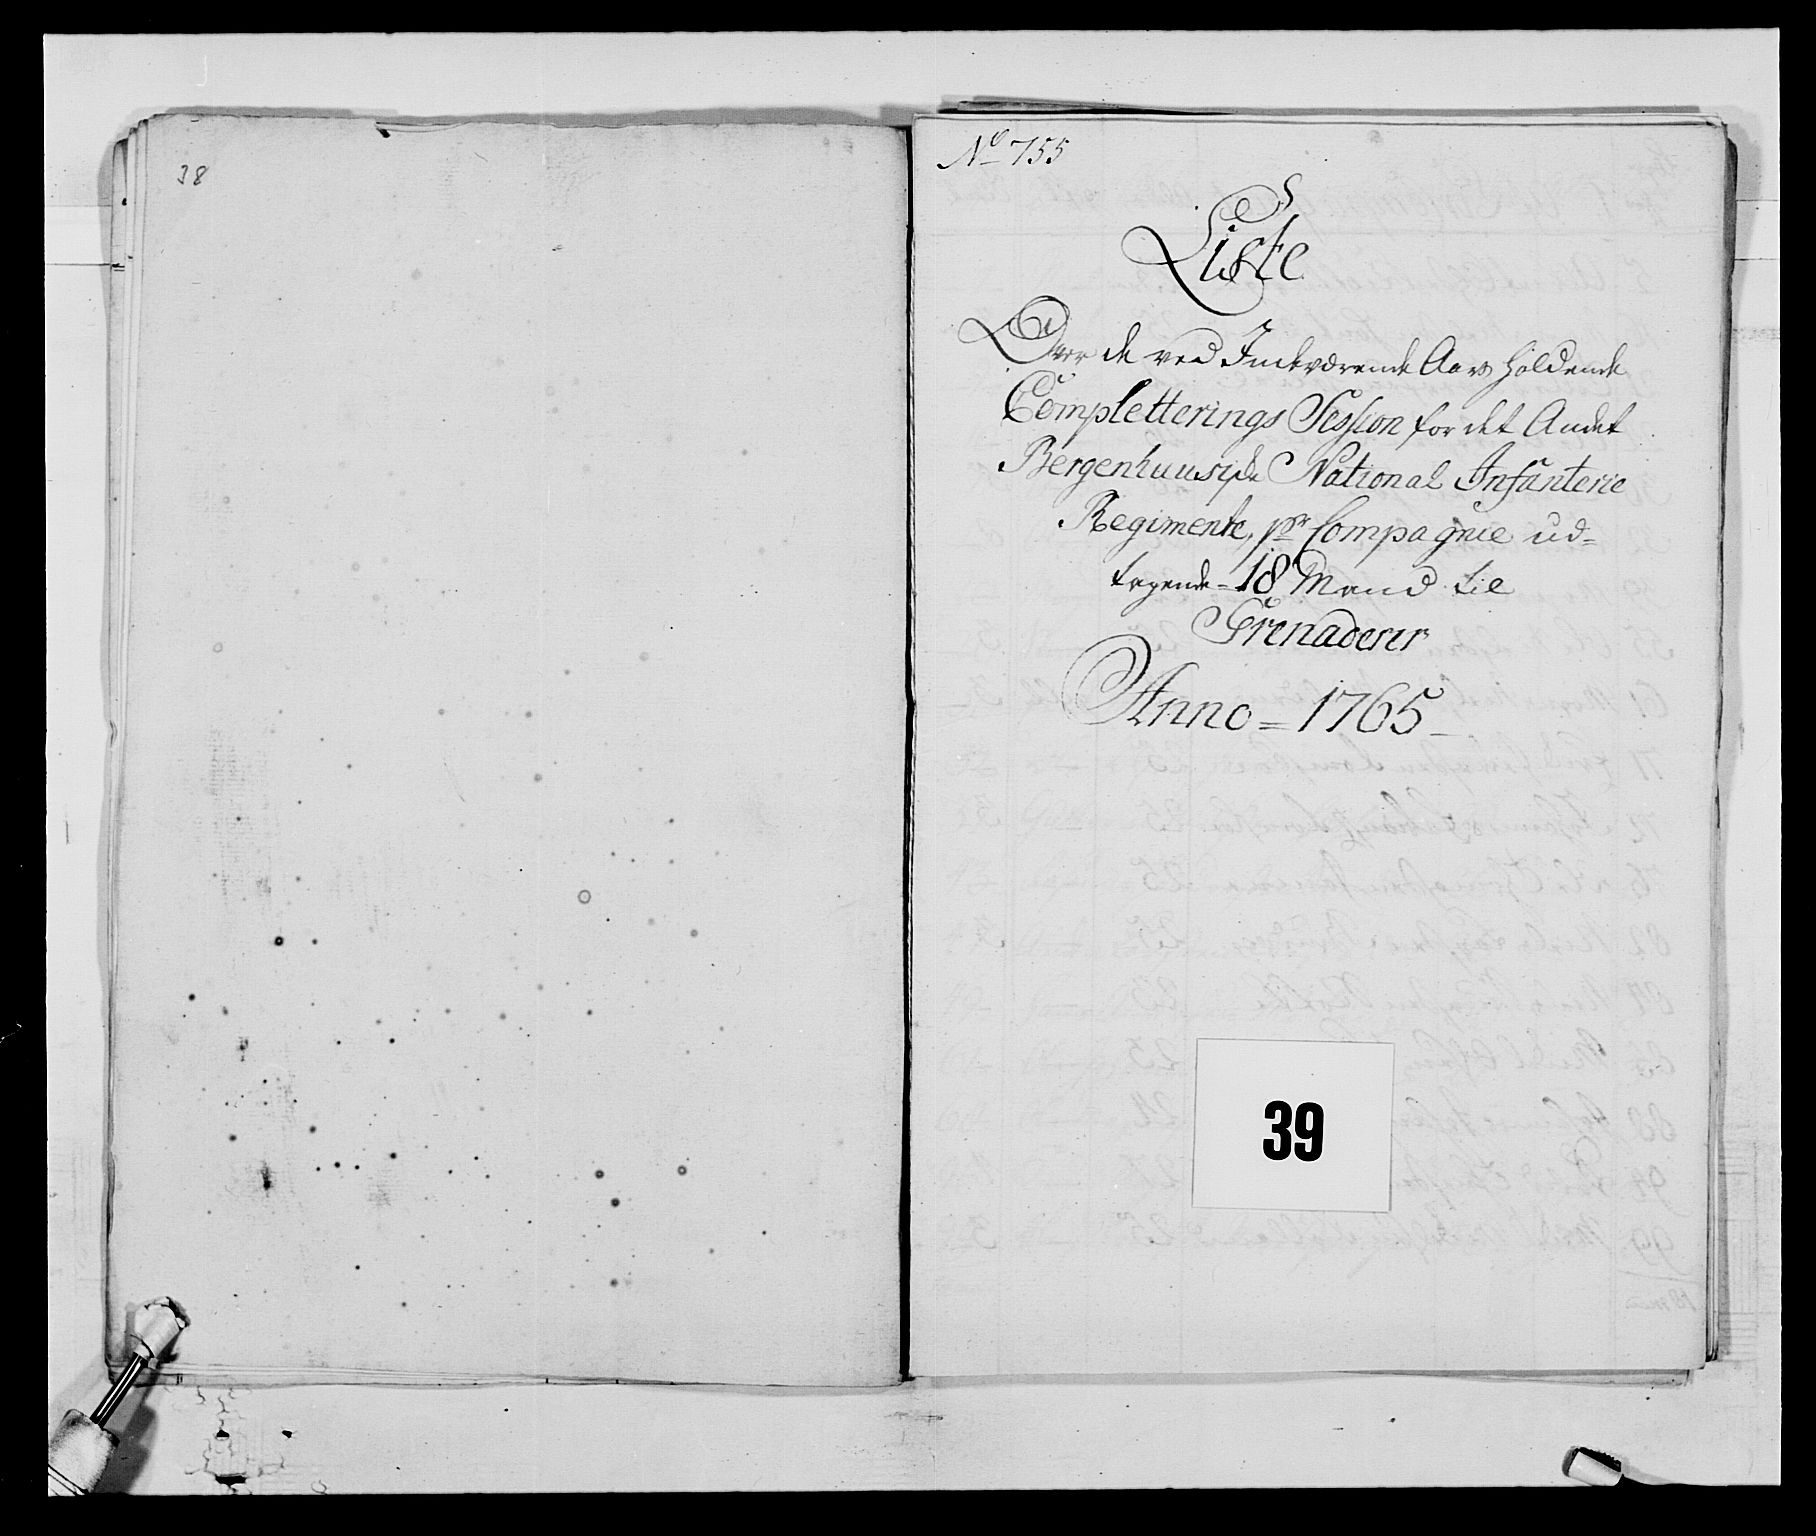 38
No 755
Liste
Over de ved Indeværende Aars holdende
Completterings Session for det Andet
Bergenhuusiske National Infanterie
Regimente, pr Compagnie ud-
tagende - 18 Mand til
Grenaderer
Anno = 1765
39